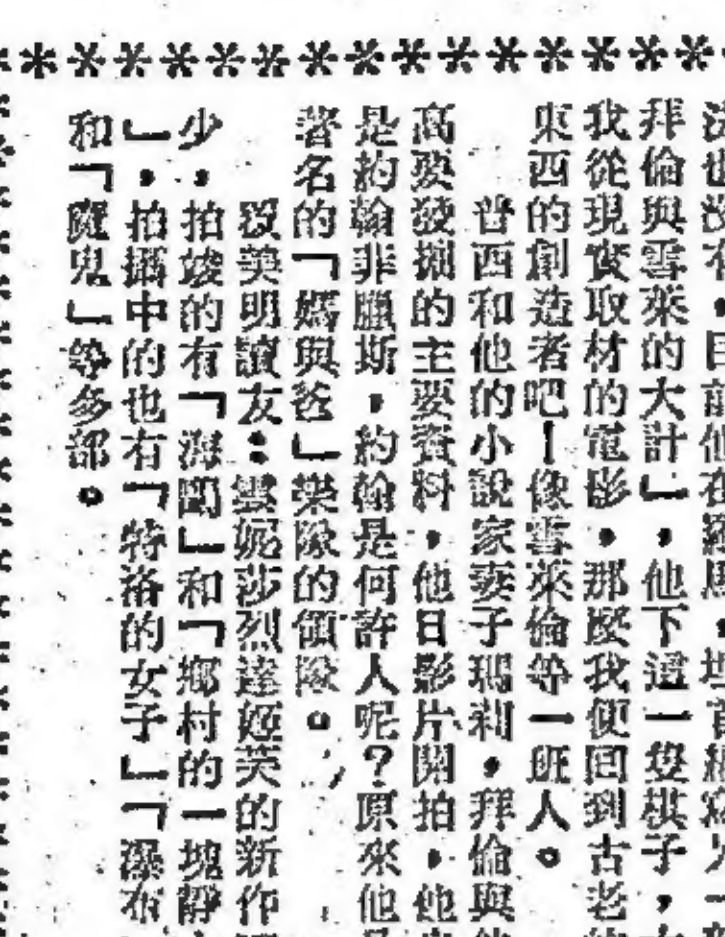 拜倫與雪萊的大計」，他下這一雙棋子，
我從現實取材的電影，那麼我便回到古老
東西的創造者吧！像雪萊倫等一班人。
普西和他的小說家妻子瑪莉，拜倫與
高要發掘的主要資料，他日影片開拍，他
是約翰菲臘斯，約翰是何許人呢？原來他
著名的「媽與爸」樂隊的領隊。
覆美明讀友：雲妮莎烈達姬芙的新作
少，拍竣的有「海鷗」和「鄉村的一塊靜
」，拍攝中的也有「特洛的女子」「瀑布
和「魔鬼」等多部。